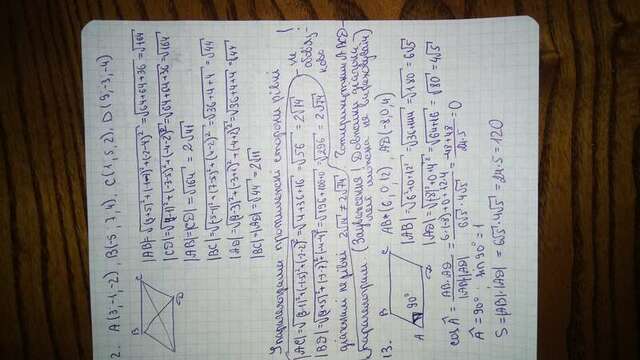 2. A(3,-1,-2), B(-5, 7, 4), C(1, 5, 2), D(9,-3,-4)
B C
D
|AB|=√(3+5)²+(-1-7)²+(-2-4)² = √64+64+36 = √164
|CD|=√(9-1)²+(-3-5)²+(-4-2)² = √64+64+36 = √164
|AB|=|CD|=√164 = 2√41
|BC|=√(-5-1)²+(7-5)²+(4-2)² = √36+4+4 = √44
|AD|=√(9-3)²+(-3+1)²+(-4+2)² = √36+4+4 = √44
|BC|=|AD|=√44 = 2√11
У паралелограма протилежні сторони рівні
|AC|=√(3-1)²+(-1-5)²+(-2-2)² = √4+36+16 = √56 = 2√14 - не
|BD|=√(9+5)²+(-3-7)²+(-4-4)² = √196+100+ = √296 = 2√74 обов'яз-
ково !
діагоналі не рівні 2√14 ≠ 2√74 Чотирикутник ABCD -
паралелограм. (Зауваження! Довжини діагона
лей можна не вираховувати)
13. B C AB(6, 0, 12), AD(-8, 0, 4)
A 90° D
|AB|=√6²+0+12² = √36+144 = √180 = 6√5
|AD|=√(-8)²+0+4² = √64+16 = √80 = 4√5
cos Â = AB·AD / |AB||AD| = 6·(-8)+0+12·4 / 6√5·4√5 = -48+48 / 24·5 = 0
Â = 90° ; sin 90° = 1
S=|AB|·|AD| = 6√5·4√5 = 24·5 = 120